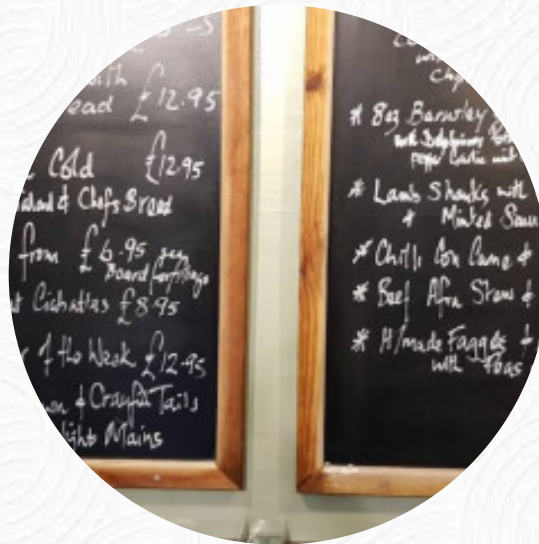 ith
ead £12.95
Cold £12.95
alad & Chefs Bread
from £6.95 see
Board for fillings
Ciabattas £8.95
of the Week £12.95
on & Crayfish Tails
light Mains
* 8oz Barnsley
with
* Lamb Shanks with
& Minted Sau
* Chilli Con Carne &
* Beef Stew &
* H/made Faggots &
with Peas